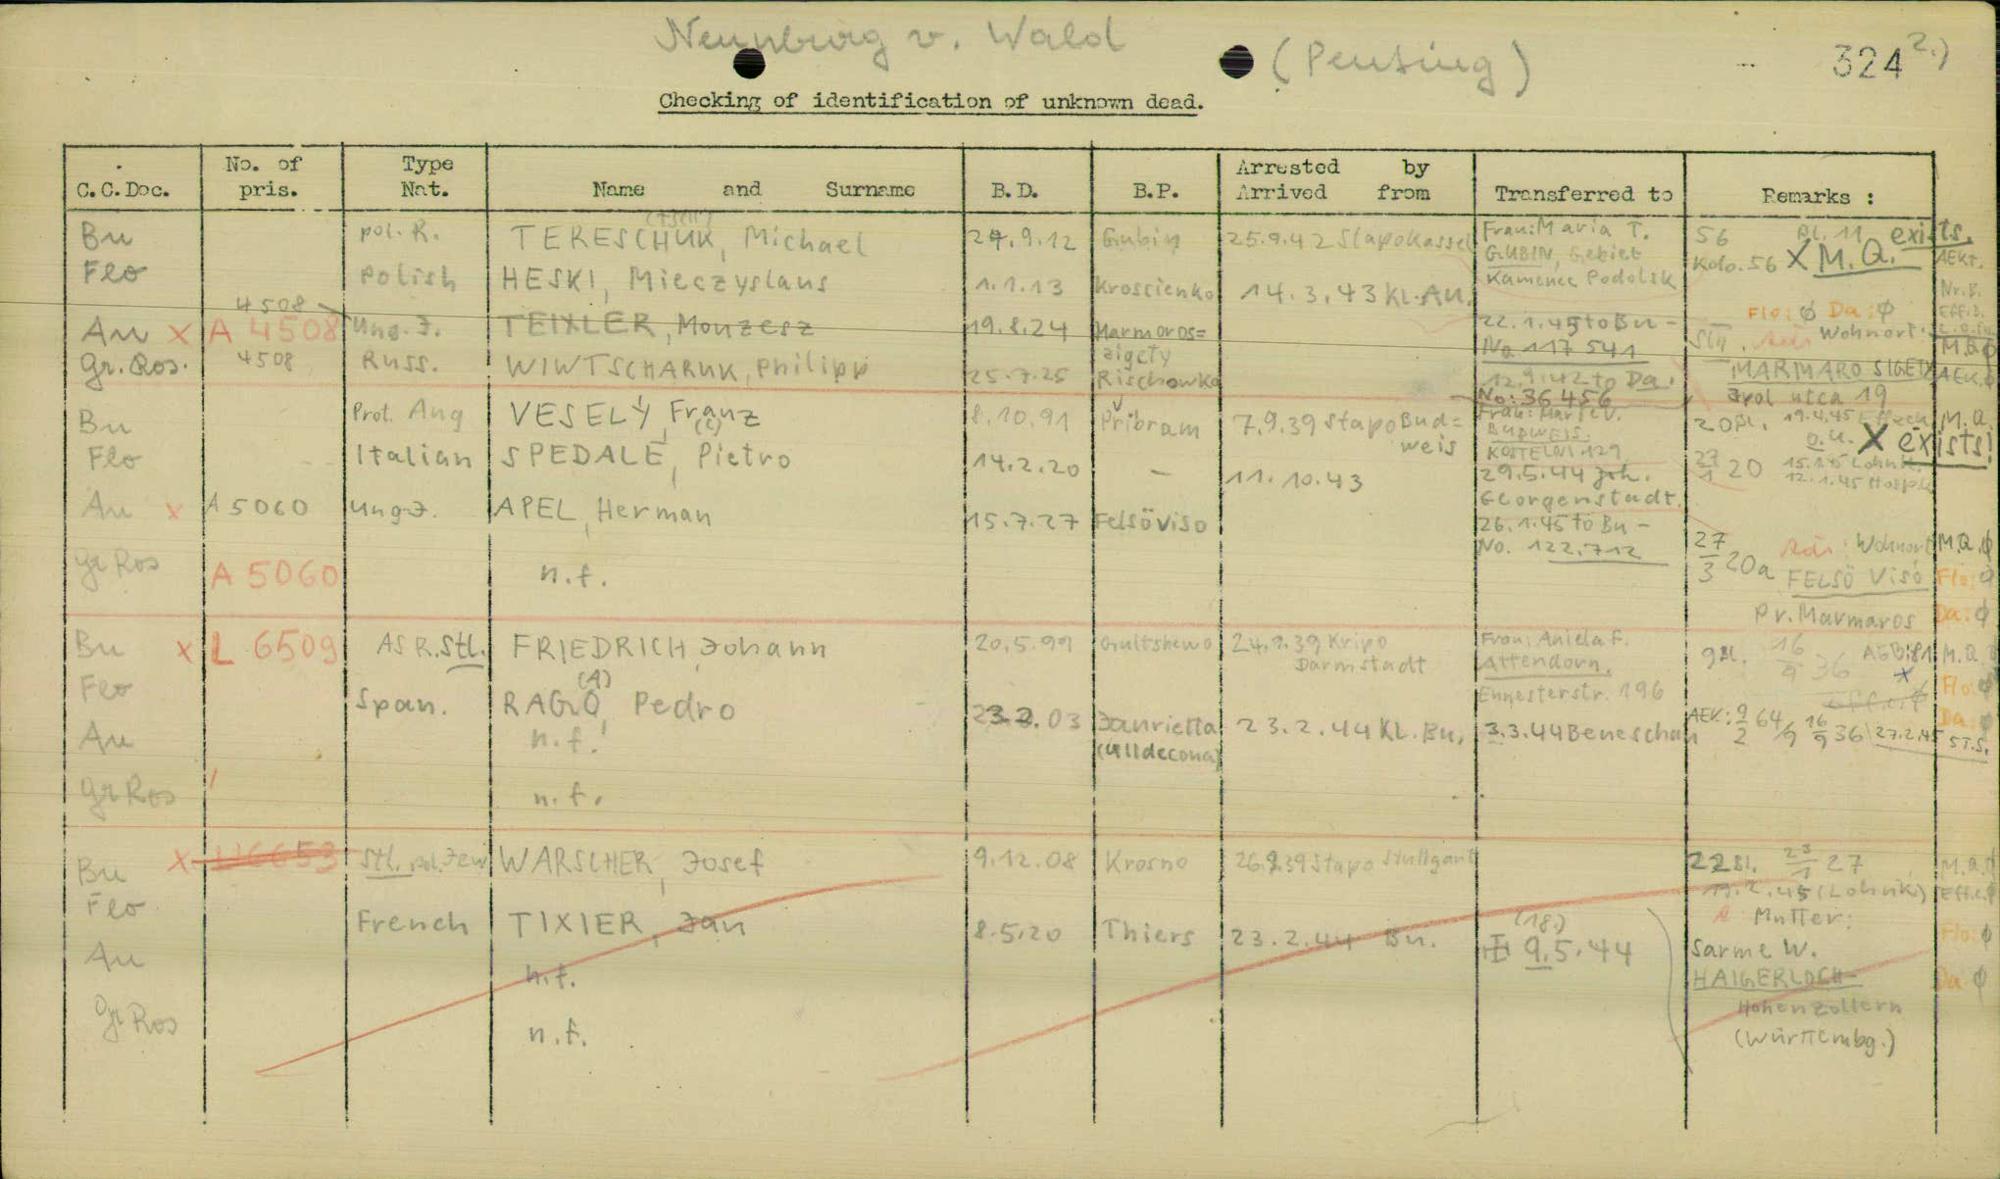 Neunburg v. Wald (Pensing) 324 2.)
Checking of identification of unknown dead.
C.C.Doc. No. of pris. Type Nat. Name and Surname B.D. B.P. Arrested by Arrived from Transferred to Remarks :
Bu pol. R. TERESCHUK, Michael 24.9.12 Gubin 25.9.42 Stapo Kassel Frau: Maria T. 56 Bl. 11 exists.
GUBIN, Gebiet X M.Q. AEKt.
Flo Polish HESKI, Mieczyslaus 1.1.13 Kroscienko 14.3.43 KL.Au. Kamenec Podolsk Kolo.56
4508 Flo: ϕ Da: ϕ
Au X A 4508 Ung. J. TEIXLER, Monzesz 19.8.24 Marmoros= zigety 22.1.45 to Bu - No 117 541 Wohnort: M.Q.ϕ
Gr. Ros. 4508 Russ. WIWTSCHARUK, Philipp 25.7.25 Rischowka 12.9.42 to Da. No: 36 456 MARMARO SIGET AEK.ϕ
arol utca 19
Bu Prot. Ang VESELÝ, Franz 8.10.91 Přibram 7.9.39 Stapo Bud= weis Frau: Marie V. 20 Bl. 19.4.45 M.Q.
BUDWEIS. o.u. X exists!
KOSTELNI 129
Flo Italian SPEDALE, Pietro 14.2.20 — 11.10.43 29.5.44 Joh. Georgenstadt. 27/1 20
Au x A 5060 Ung. J. APEL, Herman 15.7.27 Felsöviso 26.1.45 to Bu - No. 122.712 27/3 20a Wohnort M.Q.ϕ
Gr Ros A 5060 n.f. FELSÖ Visó Flo: ϕ
Pr. Marmaros Da: ϕ
Bu X L 6509 ASR. Stl. FRIEDRICH, Johann 20.5.99 Gultshewo 24.9.39 Kripo Darmstadt Frau: Aniela F. 9 Bl. 16/9 36 M.Q.
Attendorn.
Ennesterstr. 196 Flo: ϕ
Flo Span. RAGO, (A) Pedro 23.2.03 Janrietta (Valldecona) 23.2.44 KL. Bu. 3.3.44 Beneschau AEK.: 9/2 64/9 16/9 36 27.2.45 Da: ϕ
ST.S.
Au n.f.
Gr Ros n.f.
Bu X 116653 Stl. pol. Jew WARSCHER, Josef 9.12.08 Krosno 26.9.39 Stapo Stuttgart 22 Bl. 25/1 27 M.Q.ϕ
19.2.45 (Lohnk.) Eff.: ϕ
Flo French TIXIER, Jan 8.5.20 Thiers 23.2.44 Bu. (18.) 9.5.44 Mutter: Flo: ϕ
Au n.f. Sarme W.
HAIGERLOCH Da: ϕ
Gr Ros n.f. Hohenzollern
(Württembg.)